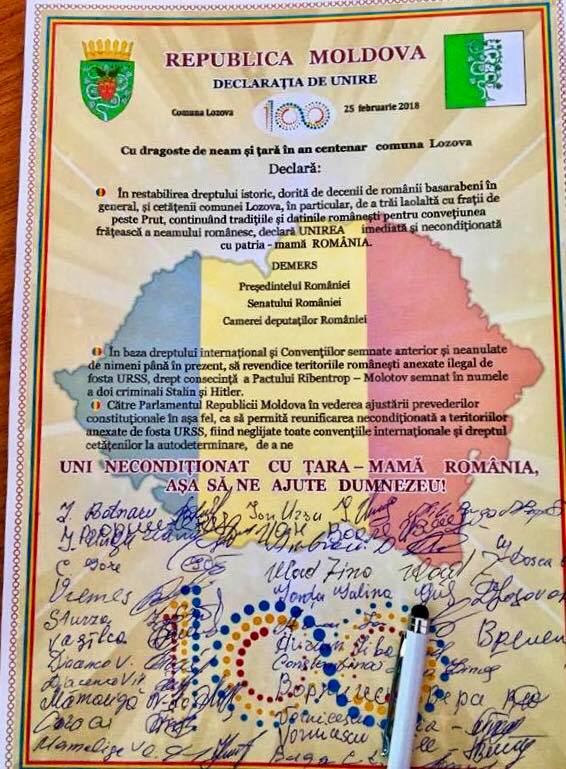 REPUBLICA MOLDOVA
DECLARAȚIA DE UNIRE
Comuna Lozova 100 25 februarie 2018
Cu dragoste de neam și țară în an centenar comuna Lozova
Declară:
În restabilirea dreptului istoric, dorită de decenii de românii basarabeni în
general, și cetățenii comunei Lozova, în particular, de a trăi laolaltă cu frații de
peste Prut, continuând tradițiile și datinile românești pentru convețiunea
frățească a neamului românesc, declară UNIREA imediată și necondiționată
cu patria - mamă ROMÂNIA.
DEMERS
Președintelui României
Senatului României
Camerei deputaților României
În baza dreptului internațional și Convențiilor semnate anterior și neanulate
de nimeni până în prezent, să revendice teritoriile românești anexate ilegal de
fosta URSS, drept consecință a Pactului Ribentrop – Molotov semnat în numele
a doi criminali Stalin și Hitler.
Către Parlamentul Republicii Moldova în vederea ajustării prevederilor
constituționale în așa fel, ca să permită reunificarea necondiționată a teritoriilor
anexate de fosta URSS, fiind neglijate toate convențiile internaționale și dreptul
cetățenilor la autodeterminare, de a ne
UNI NECONDIȚIONAT CU ȚARA – MAMĂ ROMÂNIA,
AȘA SĂ NE AJUTE DUMNEZEU!
Ion Ursu
Vlad Zina Vlad Z
Vremeș Galina
Sturza
Vasilca
Diacenco V.
Constantina
Вера
Vornicescu
100